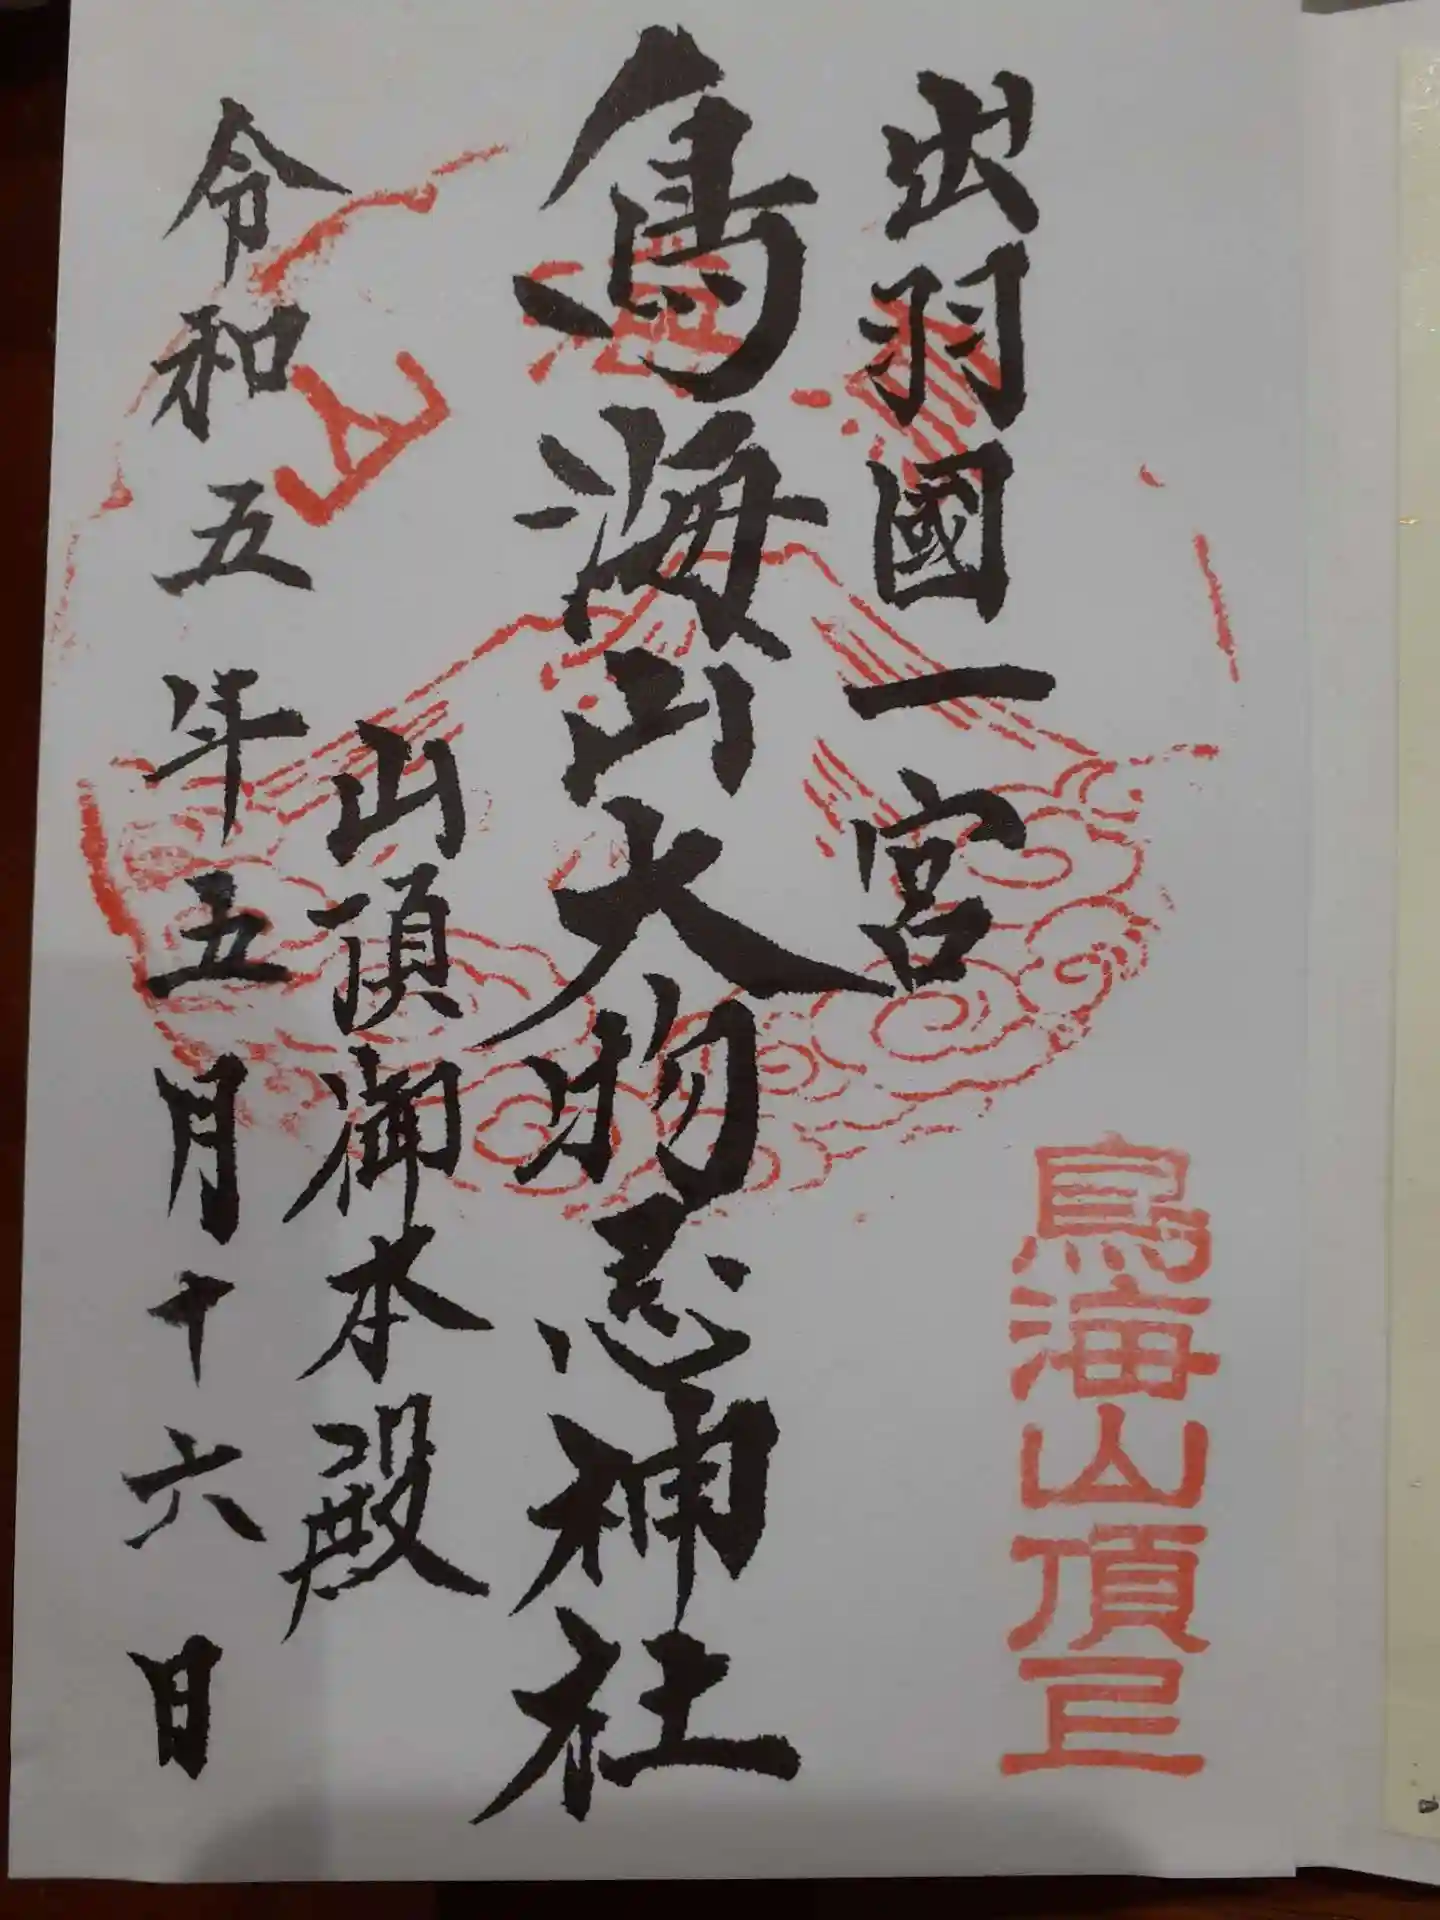 出羽國一宮
鳥海山頂上
鳥海山大物忌神社
山頂御本殿
令和五年五月十六日
海山